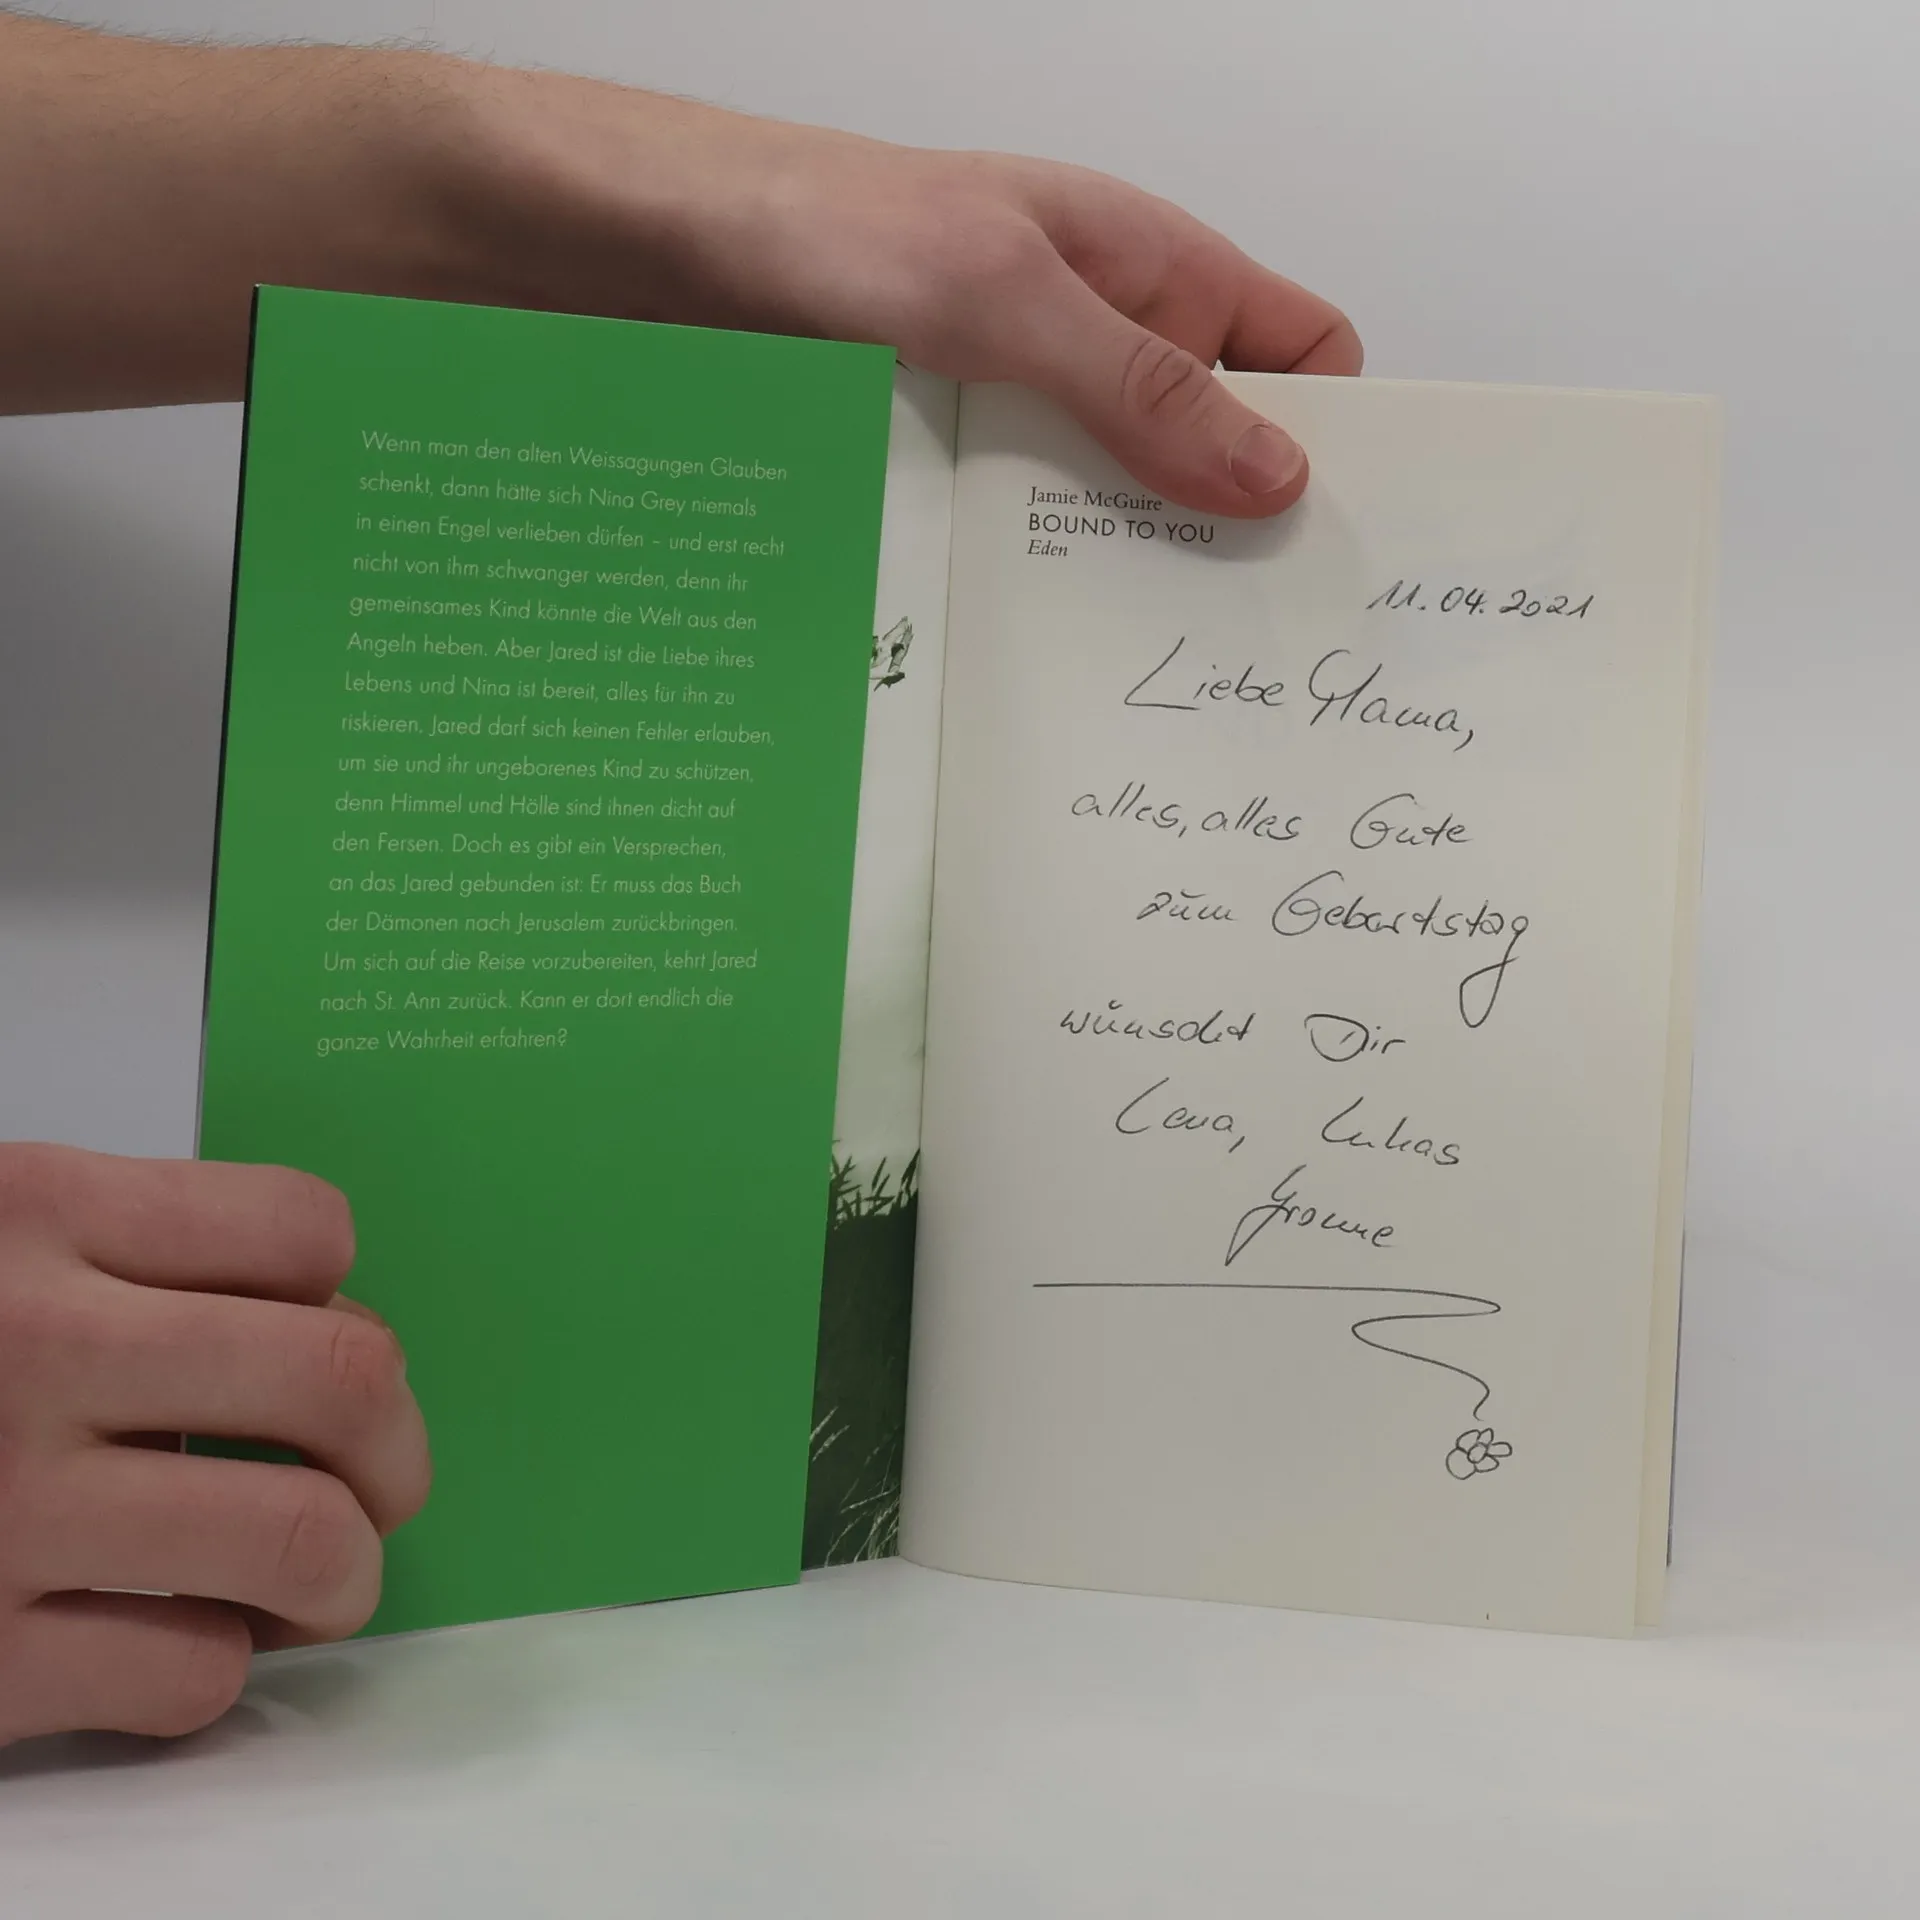 Wenn man den alten Weissagungen Glauben
schenkt, dann hätte sich Nina Grey niemals
in einen Engel verlieben dürfen – und erst recht
nicht von ihm schwanger werden, denn ihr
gemeinsames Kind könnte die Welt aus den
Angeln heben. Aber Jared ist die Liebe ihres
Lebens und Nina ist bereit, alles für ihn zu
riskieren. Jared darf sich keinen Fehler erlauben,
um sie und ihr ungeborenes Kind zu schützen,
denn Himmel und Hölle sind ihnen dicht auf
den Fersen. Doch es gibt ein Versprechen,
an das Jared gebunden ist: Er muss das Buch
der Dämonen nach Jerusalem zurückbringen.
Um sich auf die Reise vorzubereiten, kehrt Jared
nach St. Ann zurück. Kann er dort endlich die
ganze Wahrheit erfahren?
Jamie McGuire
BOUND TO YOU
Eden
11.04.2021
Liebe
alles, alles Gute
zum Geburtstag
wünscht Dir
Lena, Lukas